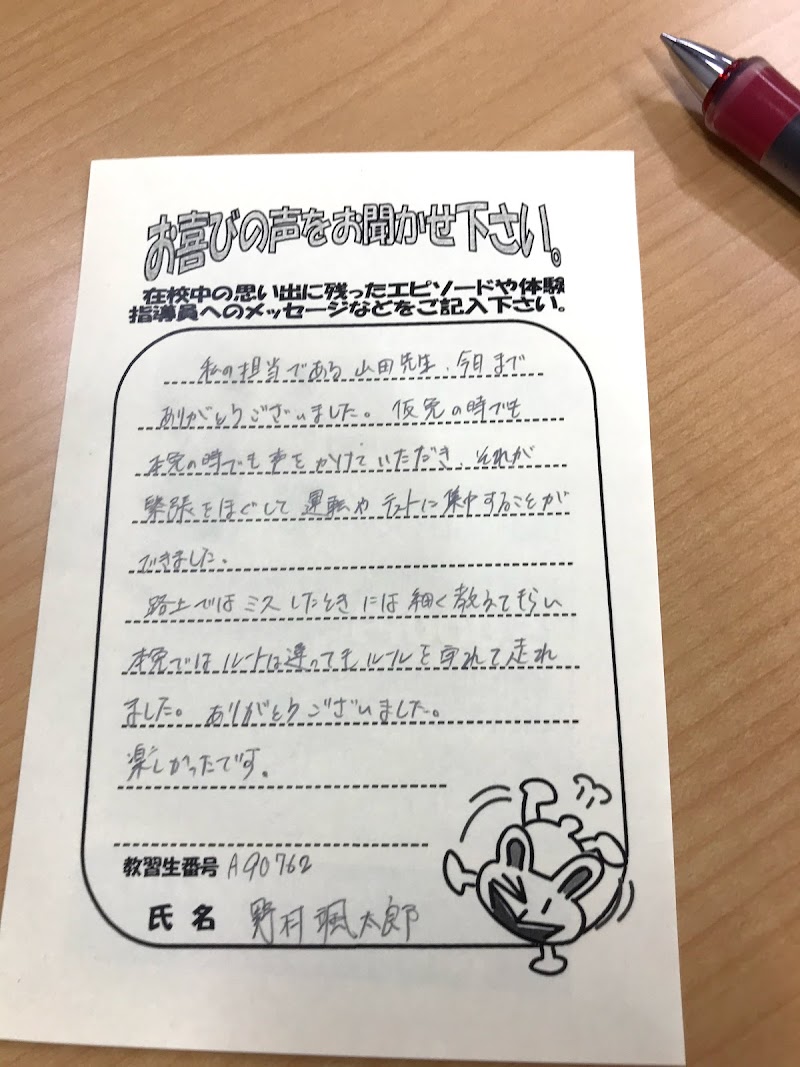 お喜びの声をお聞かせ下さい。
在校中の思い出に残ったエピソードや体験
指導員へのメッセージなどをご記入下さい。
私の担当である山田先生、今日まで
ありがとうございました。仮免の時でも
本免の時でも声をかけていただき、それが
緊張をほぐして運転やテストに集中することが
できました。
路上ではミスしたときには細く教えてもらい
本免ではルートは違ってもルールを守れて走れ
ました。ありがとうございました。
楽しかったです。
教習生番号 A90762
氏名 野村颯太郎